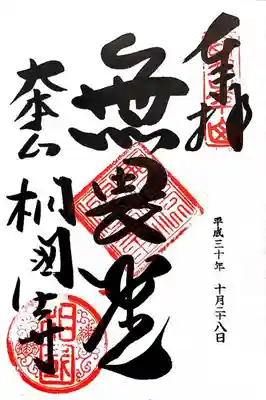 奉拝
平成三十年 十月二十八日
無畏堂
大本山
相國寺